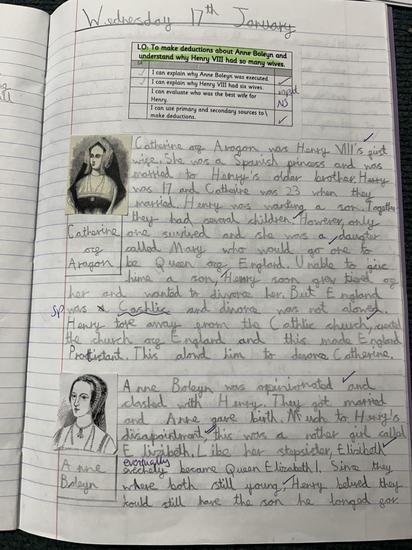 Wednesday 17th January
L.O. To make deductions about Anne Boleyn and
understand why Henry VIII had so many wives.
I can explain why Anne Boleyn was executed.
I can explain why Henry VIII had six wives.
I can evaluate who was the best wife for
Henry.
NS
I can use primary and secondary sources to
make deductions.
Catherine og Aragon was Henry VIII's girst
wige. She was a Spanish princess and was
married to Henry's older brother. Henry
was 17 and Catherine was 23 when they
married. Henery was wanting a son. Together
they had several children. However, only
Catherine
og
Aragon
one survived and she was a daughter
called Mary who would go one to
be Queen og England. Unable to give
hime a son, Henery soon grew tierd og
her and wanted to divorce her. But England
sp was Cathlic and divorce was not alowed.
Henery tore away grom the Cathlic church,
the church og England and this made England
Protistant. This alowd him to devorce Catherine.
Anne Boleyn was opinionated and
clashed with Henry. They got married
and Anne gave birth. Much to Henry's
disapointment, this was a nother girl called
Elizibeth. Like her stepsister, Elizibeth
eventually
became Queen Elizabeth I. Since they
Anne
Boleyn
where both still young, Henery belived they
could still have the son he longed gor.